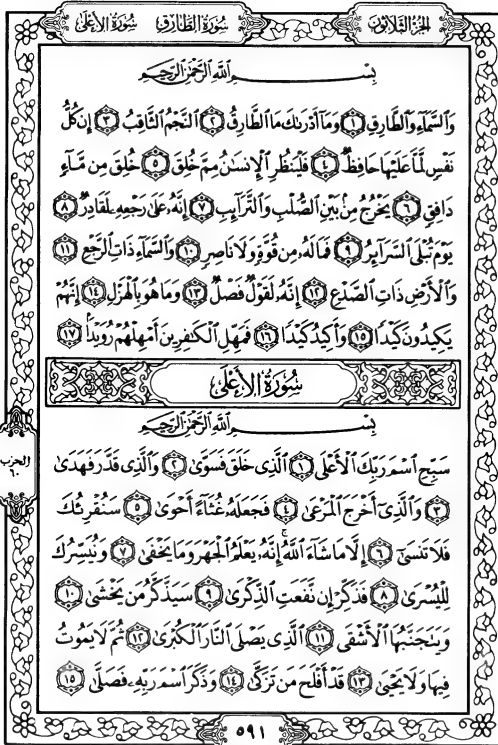 الجزء الثلاثون
سورة الطارق
سورة الأعلى
بِسْمِ اللَّهِ الرَّحْمَٰنِ الرَّحِيمِ
وَٱلسَّمَآءِ وَٱلطَّارِقِ ١ وَمَآ أَدْرَىٰكَ مَا ٱلطَّارِقُ ٢ ٱلنَّجْمُ ٱلثَّاقِبُ ٣ إِن كُلُّ
نَفْسٍ لَّمَّا عَلَيْهَا حَافِظٌ ٤ فَلْيَنظُرِ ٱلْإِنسَٰنُ مِمَّ خُلِقَ ٥ خُلِقَ مِن مَّآءٍ
دَافِقٍ ٦ يَخْرُجُ مِنۢ بَيْنِ ٱلصُّلْبِ وَٱلتَّرَآئِبِ ٧ إِنَّهُۥ عَلَىٰ رَجْعِهِۦ لَقَادِرٌ ٨
يَوْمَ تُبْلَى ٱلسَّرَآئِرُ ٩ فَمَا لَهُۥ مِن قُوَّةٍ وَلَا نَاصِرٍ ١٠ وَٱلسَّمَآءِ ذَاتِ ٱلرَّجْعِ ١١
وَٱلْأَرْضِ ذَاتِ ٱلصَّدْعِ ١٢ إِنَّهُۥ لَقَوْلٌ فَصْلٌ ١٣ وَمَا هُوَ بِٱلْهَزْلِ ١٤ إِنَّهُمْ
يَكِيدُونَ كَيْدًا ١٥ وَأَكِيدُ كَيْدًا ١٦ فَمَهِّلِ ٱلْكَٰفِرِينَ أَمْهِلْهُمْ رُوَيْدًۢا ١٧
سُورَةُ الأَعْلَىٰ
بِسْمِ اللَّهِ الرَّحْمَٰنِ الرَّحِيمِ
سَبِّحِ ٱسْمَ رَبِّكَ ٱلْأَعْلَى ١ ٱلَّذِى خَلَقَ فَسَوَّىٰ ٢ وَٱلَّذِى قَدَّرَ فَهَدَىٰ
٣ وَٱلَّذِىٓ أَخْرَجَ ٱلْمَرْعَىٰ ٤ فَجَعَلَهُۥ غُثَآءً أَحْوَىٰ ٥ سَنُقْرِئُكَ
فَلَا تَنسَىٰٓ ٦ إِلَّا مَا شَآءَ ٱللَّهُ إِنَّهُۥ يَعْلَمُ ٱلْجَهْرَ وَمَا يَخْفَىٰ ٧ وَنُيَسِّرُكَ
لِلْيُسْرَىٰ ٨ فَذَكِّرْ إِن نَّفَعَتِ ٱلذِّكْرَىٰ ٩ سَيَذَّكَّرُ مَن يَخْشَىٰ ١٠
وَيَتَجَنَّبُهَا ٱلْأَشْقَى ١١ ٱلَّذِى يَصْلَى ٱلنَّارَ ٱلْكُبْرَىٰ ١٢ ثُمَّ لَا يَمُوتُ
فِيهَا وَلَا يَحْيَىٰ ١٣ قَدْ أَفْلَحَ مَن تَزَكَّىٰ ١٤ وَذَكَرَ ٱسْمَ رَبِّهِۦ فَصَلَّىٰ ١٥
الحزب
٦٠
٥٩١